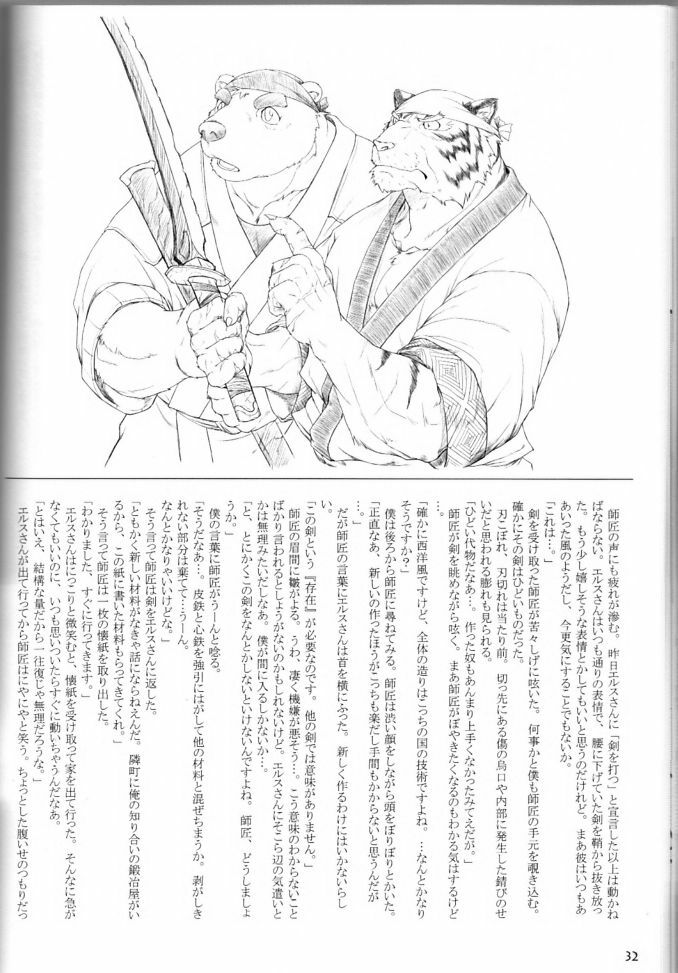 師匠の声にも疲れが滲む。昨日エルスさんに「剣を打つ」と宣言した以上は動かね
ばならない。エルスさんはいつも通りの表情で、腰に下げていた剣を鞘から抜き放っ
た。もう少し嬉しそうな表情とかしてもいいと思うのだけれど。まあ彼はいつもあ
あいった風のようだし、今更気にすることでもないか。
「これは…。」
剣を受け取った師匠が苦々しげに呟いた。何事かと僕も師匠の手元を覗き込む。
確かにその剣はひどいものだった。
刃こぼれ、刃切れは当たり前。切っ先にある傷の烏口や内部に発生した錆びのせ
いだと思われる膨れも見られる。
「ひどい代物だなあ…。作った奴もあんまり上手くなかったみてえだが。」
師匠が剣を眺めながら呟く。まあ師匠がぼやきたくなるのもわかる気はするけど
…。
「確かに西洋風ですけど、全体の造りはこっちの国の技術ですよね。…なんとかなり
そうですか？」
僕は後ろから師匠に尋ねてみる。師匠は渋い顔をしながら頭をぼりぼりとかいた。
「正直なあ、新しいの作ったほうがこっちも楽だし手間もかからないと思うんだが
…。」
だが師匠の言葉にエルスさんは首を横にふった。新しく作るわけにはいかないらし
い。
「この剣という『存在』が必要なのです。他の剣では意味がありません。」
師匠の眉間に皺がよる。うわ、凄く機嫌が悪そう…。こう意味のわからないこと
ばかり言われるとしょうがないのかもしれないけど。エルスさんにそこら辺の気遣いと
かは無理みたいだしなあ。僕が間に入るしかないか…。
「と、とにかくこの剣をなんとかしないといけないんですよね。師匠、どうしましょ
うか。」
僕の言葉に師匠がうーんと唸る。
「そうだなあ…。皮鉄と心鉄を強引にはがして他の材料と混ぜちまうか。剥がしき
れない部分は棄てて…うーん。
なんとかなりゃいいけどな。」
そう言って師匠は剣をエルスさんに返した。
「ともかく新しい材料がなきゃ話にならねえんだ。隣町に俺の知り合いの鍛冶屋がい
るから、この紙に書いた材料もらってきてくれ。」
そう言って師匠は一枚の懐紙を取り出した。
「わかりました、すぐに行ってきます。」
エルスさんはにっこりと微笑むと、懐紙を受け取って家を出て行った。そんなに急が
なくてもいいのに、いつも思いついたらすぐに動いちゃうんだなあ。
「とはいえ、結構な量だから一往復じゃ無理だろうな。」
エルスさんが出て行ってから師匠はにやにやと笑う。ちょっとした腹いせのつもりだっ
32